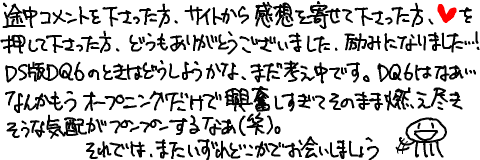 途中コメントを下さった方、サイトから感想を寄せて下さった方、♥を
押して下さった方、どうもありがとうございました、励みになりました…!
DS版DQ6のときはどうしようかな、まだ考え中です。DQ6はなあ…
なんかもうオープニングだけで興奮しすぎてそのまま燃え尽き
そうな気配がプンプンするなあ(笑)。
それでは、またいずれどこかでお会いしましょう